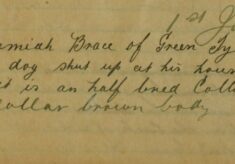 1st J
miah Brace of Green Ty
dog shut up at his hous
it is an half bred Coll
collar brown body